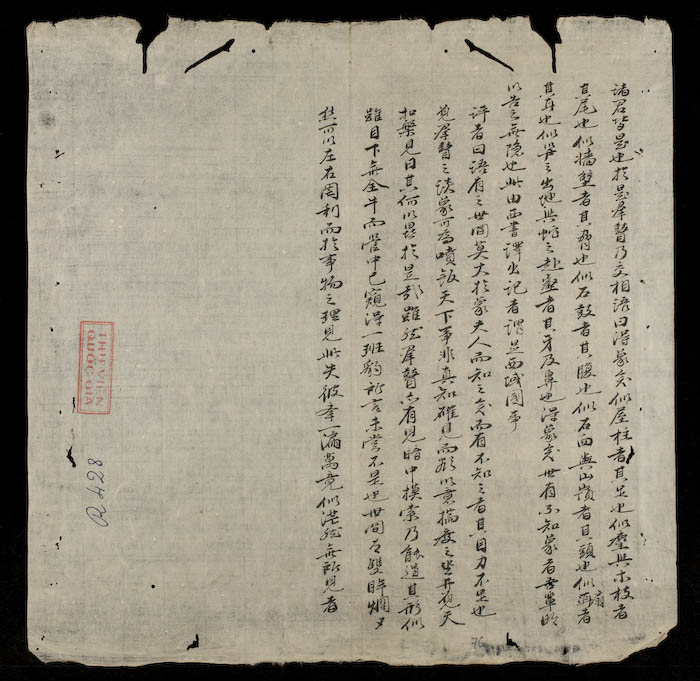 諸君皆是也於是羣瞽乃交相語曰得象矣似屋柱者其足也似麈與木枝者
其尾也似墻壁者其脅也似石鼓者其腹也似石両與山嶺者其頭也似扇者
其耳也似筍之出地與蛇之赴壑者其牙及鼻也得象矣世有不知象者吾輩明
以告之無隐也此由西書譯出記者謂是西域國事
評者曰語有之世間莫大於象夫人而知之矣而有不知之者其目力不足也
覔羣瞽之談象可為噴飯天下事非真知確見而欲以意揣度之坐井覔天
扣槃見日其何以異於是却雖然羣瞽亦有見暗中摸索乃能道其形似
雖目下無全牛而管中已窺得一班豹所言未嘗不是也世間有雙眸烱夕
然可以左右罔利而於事物之理見此失彼挈一漏萬竟似茫然無所見者
THƯ VIỆN
QUỐC GIA
R.428
76